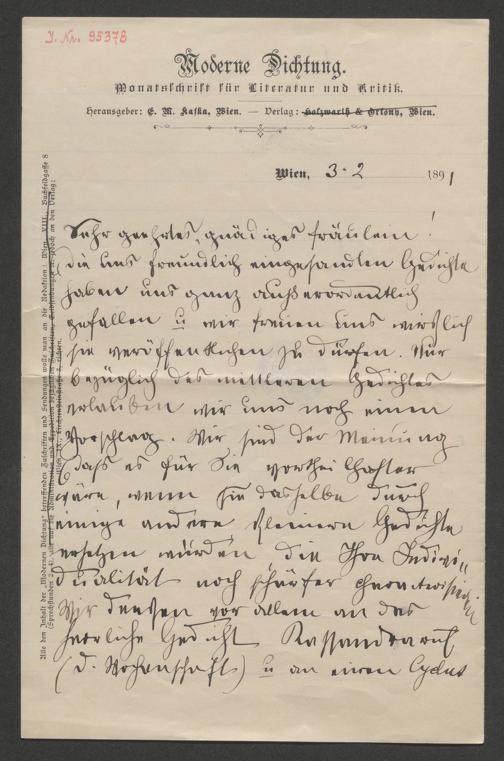 J. Nr. 95378
Moderne Dichtung.
Monatsschrift für Literatur und Kritik.
Herausgeber: E. M. Kafka, Wien. — Verlag: Holzwarth & Ortony, Wien.
Wien, 3·2 1891
Alle den Inhalt der „Modernen Dichtung“ betreffenden Zuschriften und Sendungen wolle man an die Redaktion: Wien, VIII., Buchfeldgasse 8
Sehr geehrtes, gnädiges Fräulein!
Die uns freundlich eingesandten Gedichte
haben uns ganz außerordentlich
gefallen u wir freuen uns wirklich
sie veröffentlichen zu dürfen. Nur
bezüglich des mittleren Gedichtes
erlauben wir uns noch einen
Vorschlag. Wir sind der Meinung
daß es für Sie vortheilhafter
wäre, wenn Sie dasselbe durch
einige andere kleinere Gedichte
ersetzen würden die Ihre Indivi„
dualität noch schärfer charakterisiren
Wir denken vor allem an das
herrliche Gedicht Kassandraruf
(d. Wochenschrift) u an einen Cyclus